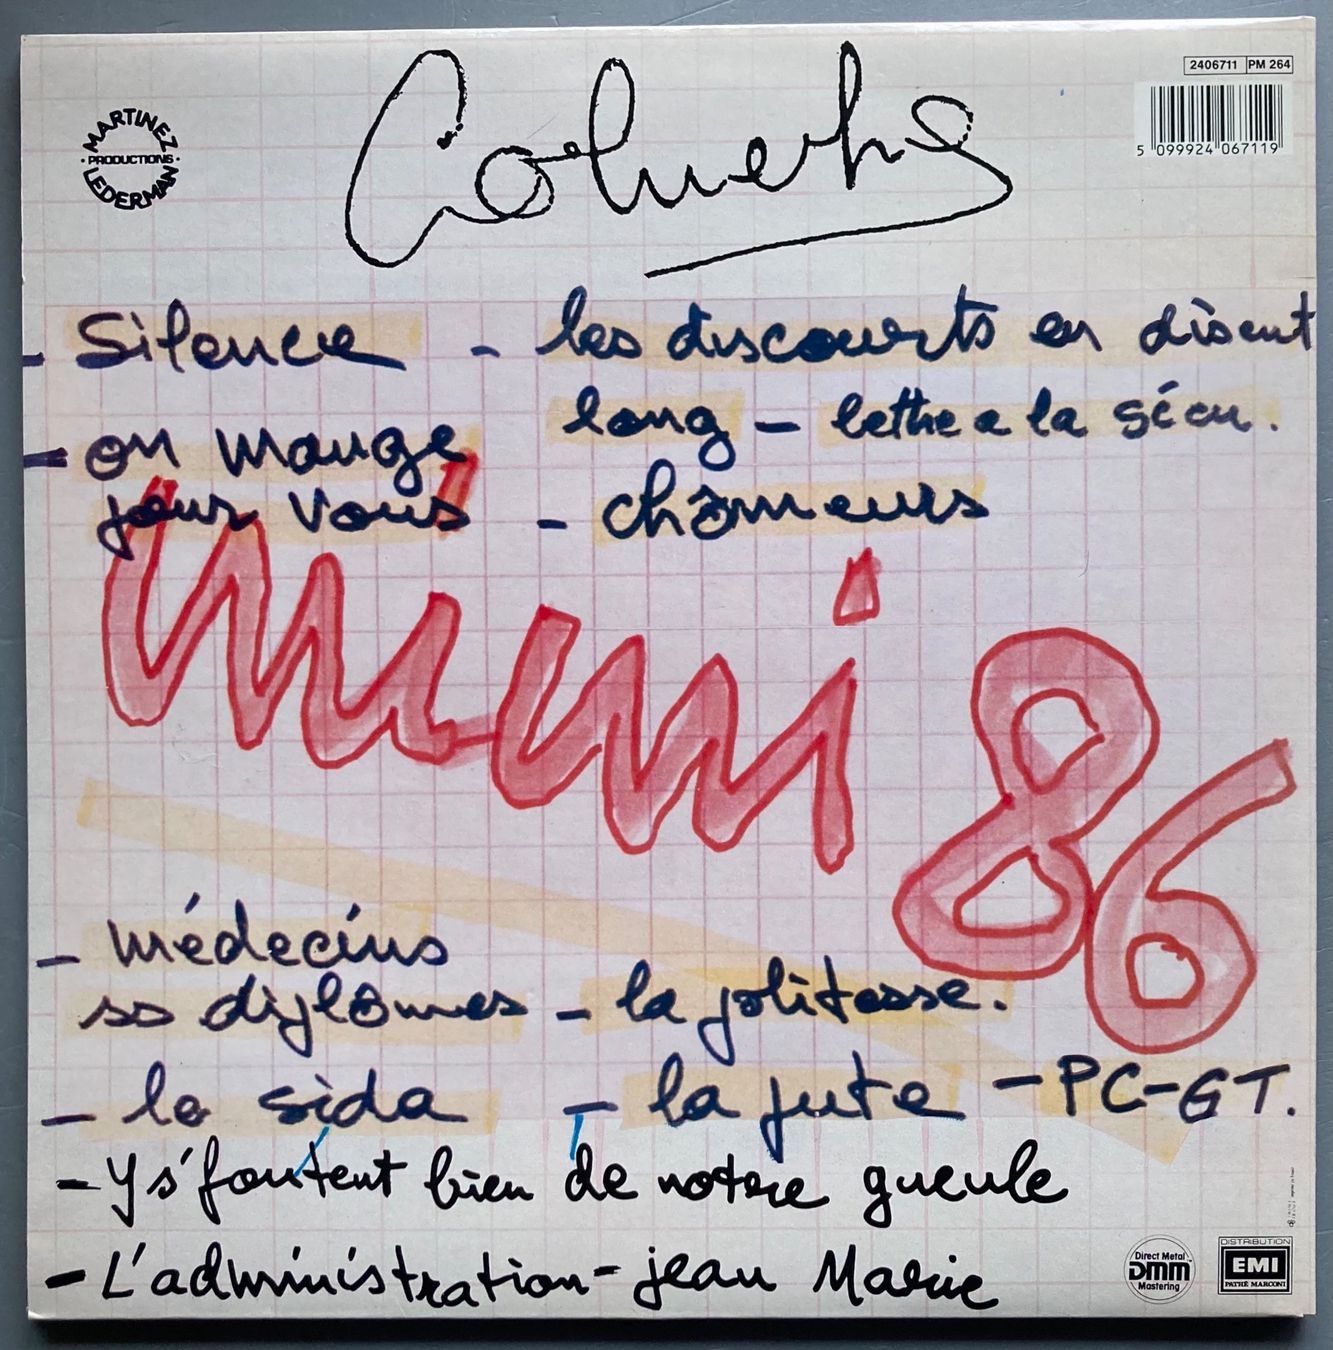 2406711 PM 264
MARTINEZ
PRODUCTIONS
LEDERMAN
Coluche
5 099924 067119
- Silence - les discourts en disent
long - lettre a la sécu.
- on mange
pour vous - chômeurs
mimi 86
- médecins
ss diplômes - la politesse.
- le sida - la pute - PC-GT.
- Y s'foutent bien de notre gueule
- L'administration - jean Marie
Direct Metal
DMM
Mastering
DISTRIBUTION
EMI
PATHÉ MARCONI